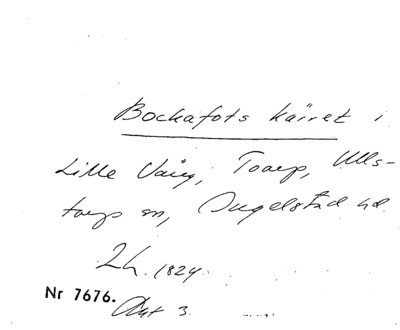 Bockafots kärret i
Lille Vång, Toarp, Ulls-
torps sn, Ingelstad hd.
Lh. 1824.
Nr 7676.
Akt 3.